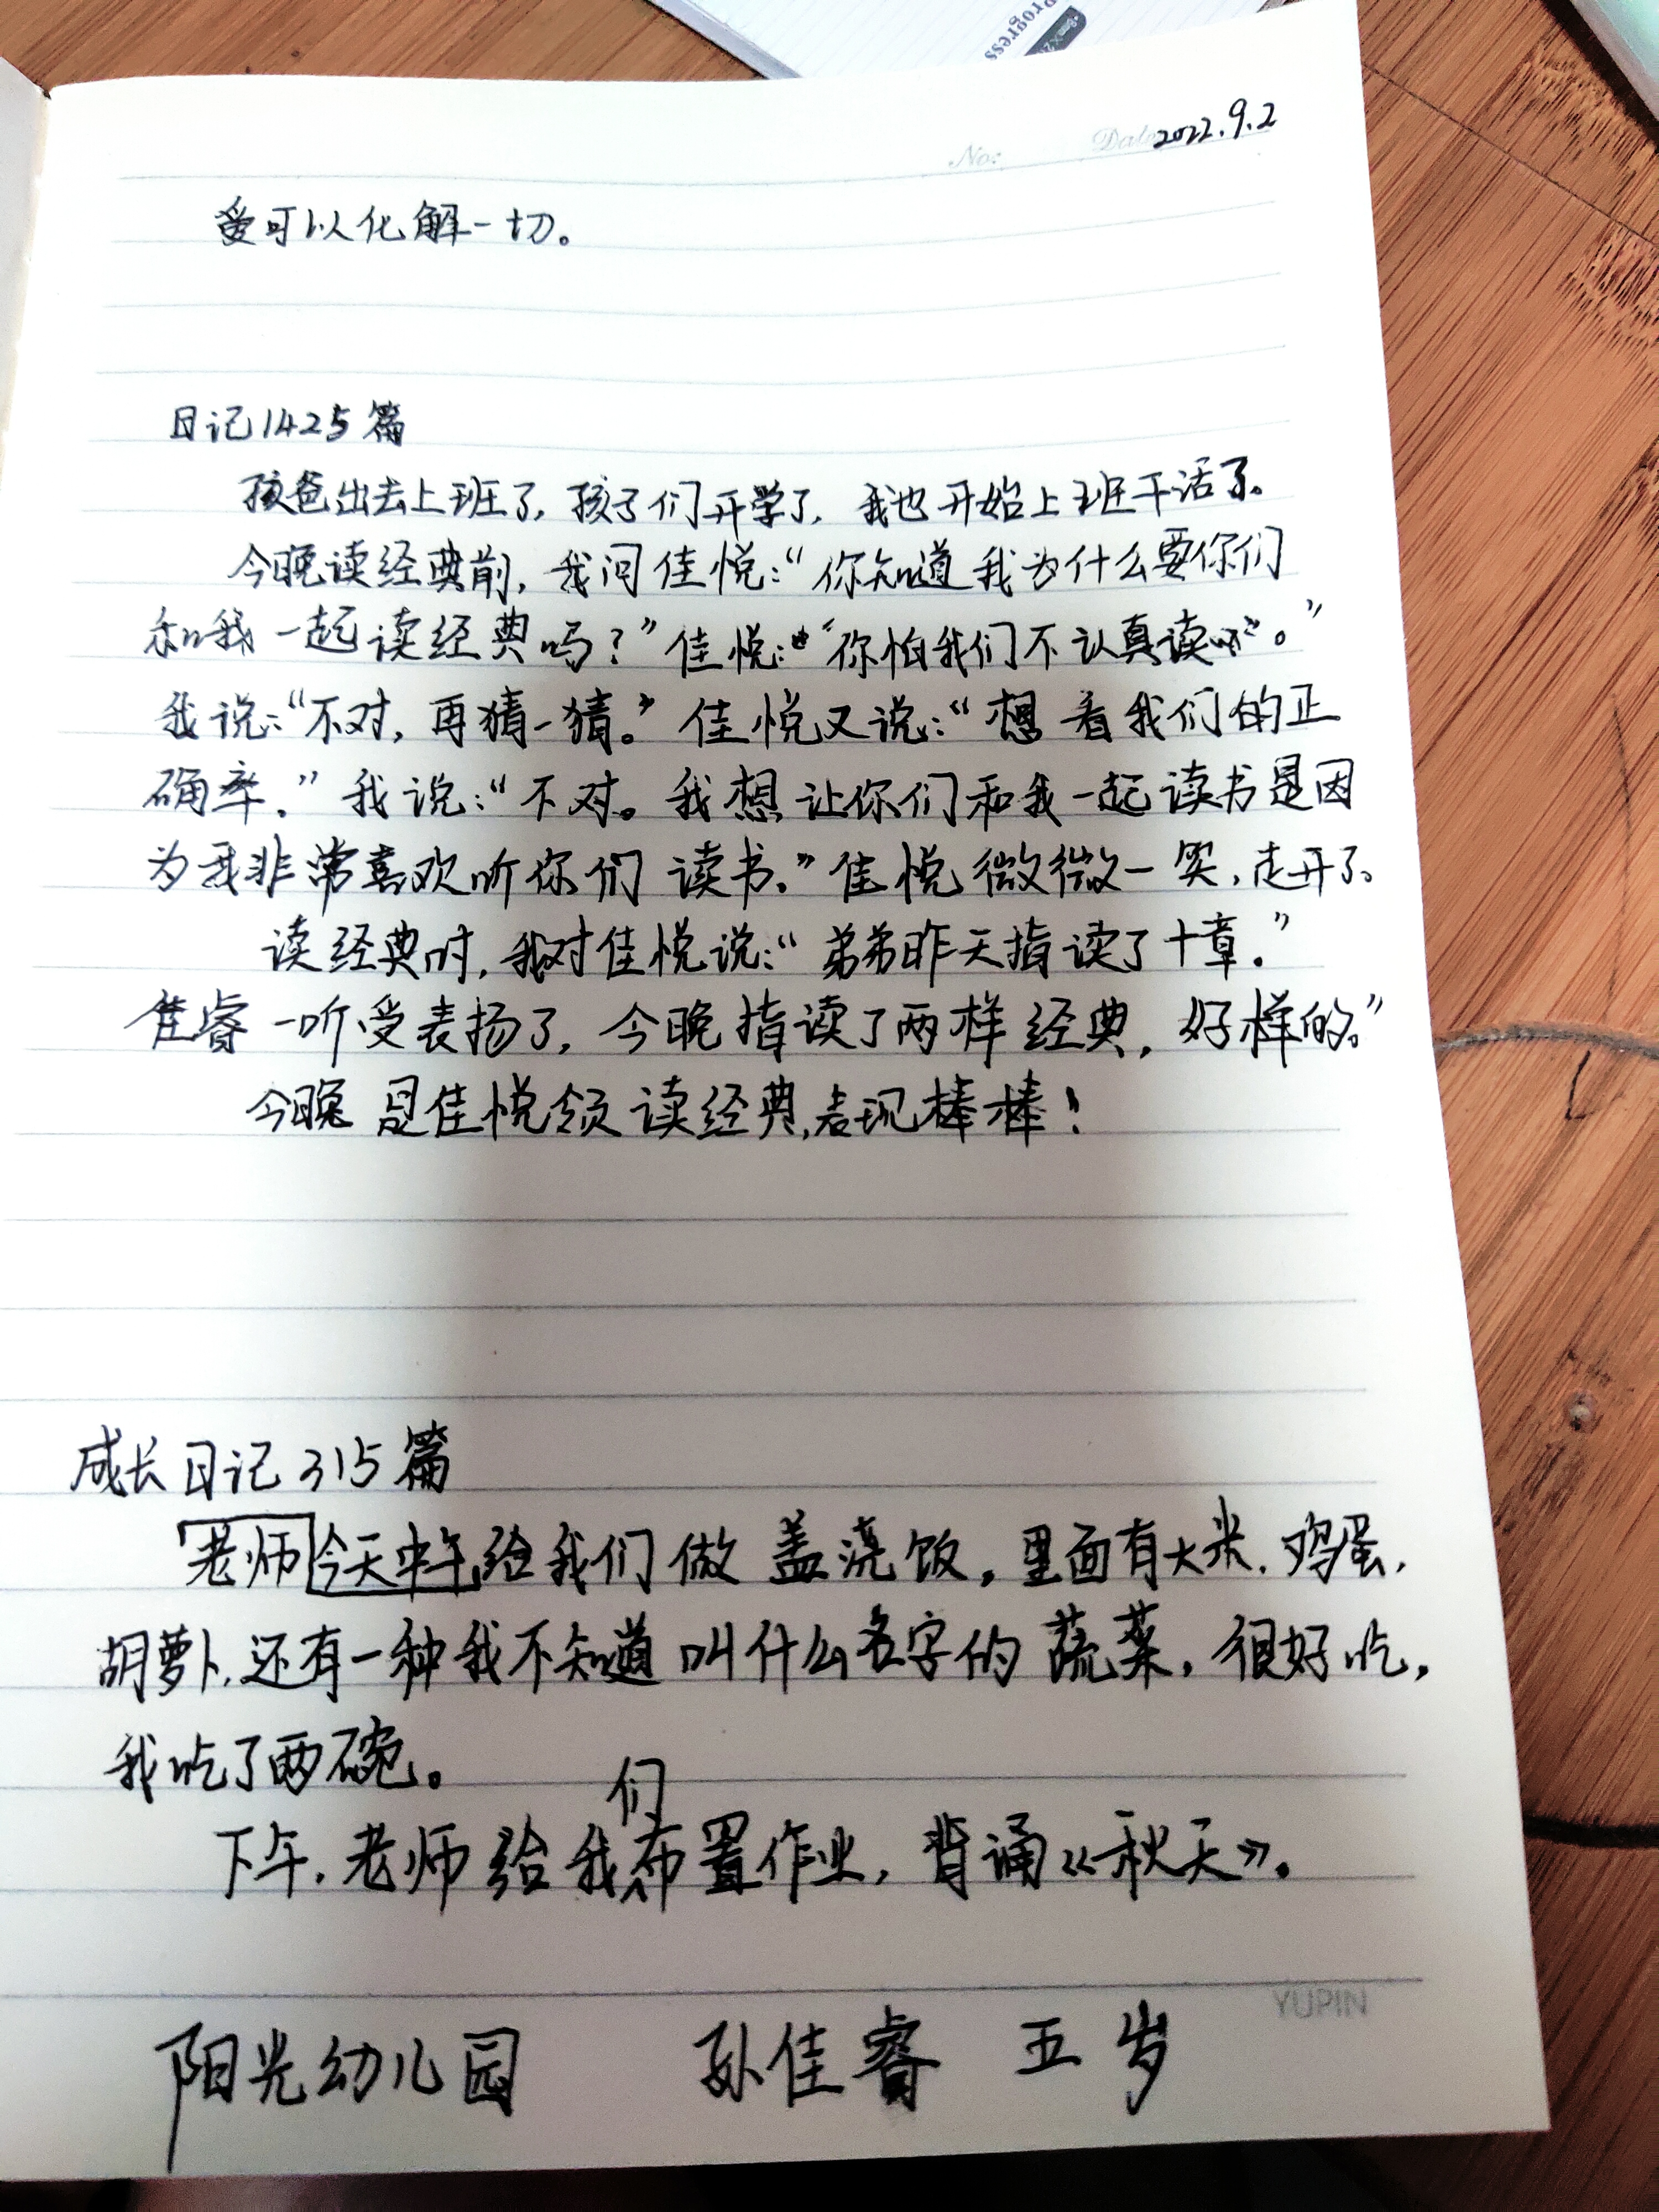 Progress
No: Date 2022.9.2
爱可以化解一切。
日记1425篇
孩爸出去上班了，孩子们开学了，我也开始上班干活了。
今晚读经典前，我问佳悦：“你知道我为什么要你们
和我一起读经典吗？”佳悦：“你怕我们不认真读呗。”
我说：“不对，再猜一猜。”佳悦又说：“想看我们的正
确率。”我说：“不对。我想让你们和我一起读书是因
为我非常喜欢听你们读书。”佳悦微微一笑，走开了。
读经典时，我对佳悦说：“弟弟昨天指读了十章。”
佳睿一听受表扬了，今晚指读了两样经典，好样的。”
今晚是佳悦领读经典，表现棒棒！
成长日记315篇
老师今天中午给我们做盖浇饭，里面有大米、鸡蛋、
胡萝卜，还有一种我不知道叫什么名字的蔬菜，很好吃，
我吃了两碗。
下午，老师给我们布置作业，背诵《秋天》。
YUPIN
阳光幼儿园 孙佳睿 五岁